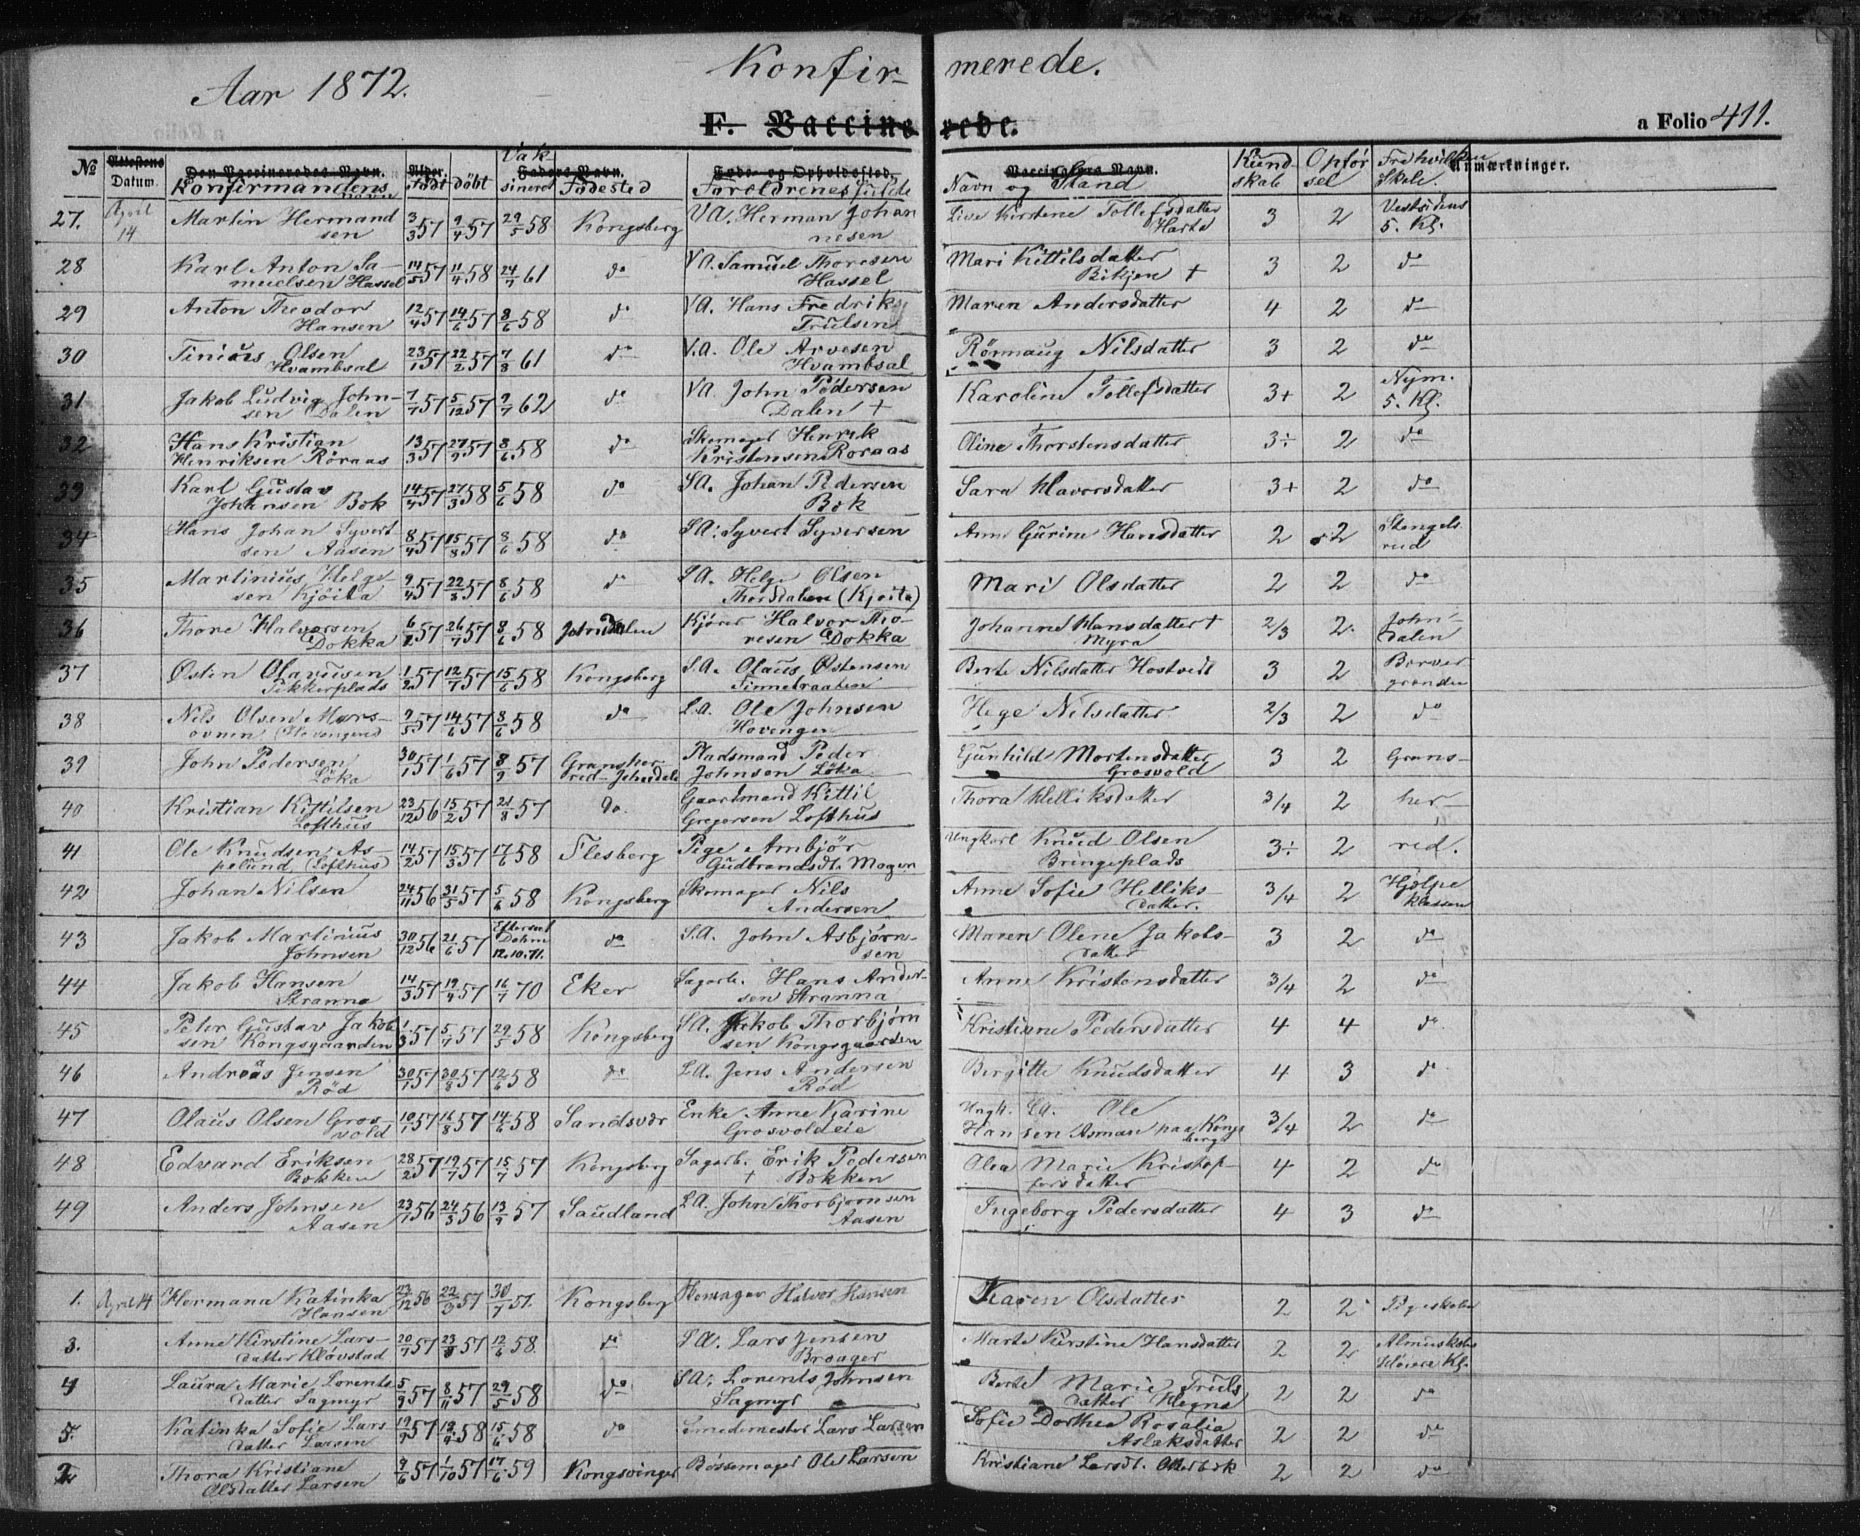 Aar 1872. Konfir- merede.
F. Vaccine rede. a Folio 411.
№ Attestens Datum. Den Vaccineredes Navn. Alder. Faders Navn. Føde- og Opholdssted. Vaccineurs Navn. Anmærkninger.
Konfirmandens navn Født döbt Vaksineret Födested Foroldrenes fulde Navn og Stand Kundskab Opførsel Fra hvilken Skole.
27. April 14 Martin Hermand 3/3 57 9/4 57 29/5 58 Kongsberg VA. Herman Johan Live Kirstine Tollefsdatter 3 2 Vestsidens
sen nesen Harte 5. Kl.
28 Karl Anton Sa- 14/5 57 11/4 58 24/7 61 do VA. Samuel Thoresen Mari Kittilsdatter 3 2 do
muelsen Hassel Hassel Bikjen +
29 Anton Theodor 12/4 57 14/6 57 8/6 58 do VA. Hans Fredrik Maren Andersdatter 4 2 do
Hansen Trulsen
30 Tinius Olsen 23/1 57 22/2 57 7/8 61 do V.A. Ole Arvesen Rönnaug Nilsdatter 3 2 do
Hvambsal Hvambsal
31 Jakob Ludvig John- 7/7 57 5/12 57 9/7 62 do VA. John Pedersen Karoline Tollefsdatter 3+ 2 Nym.
sen Dalen Dalen + 5. Kl.
32 Hans Kristian 13/3 57 27/9 57 8/6 58 do Skomager Henrik Oline Thorstensdatter 3÷ 2 do
Henriksen Röraas Kristensen Roraas
33 Karl Gustav 14/4 57 27/3 58 5/6 58 do SA. Johan Pedersen Sara Havorsdatter 3+ 2 do
Johansen Bok Bok
34 Hans Johan Syvert 8/4 57 15/8 57 8/6 58 do SA. Syvert Syversen Anne Gurine Hansdatter 2 2 Stengels
sen Aasen rud
35 Martinius Helge 9/4 57 22/3 57 8/6 58 do SA. Helge Olsen Mari Olsdatter 2 2 do
sen Kjöita Thorsdalen (Kjoita)
36 Thore Halvorsen 6/2 57 26/7 57 8/6 58 Johnsdalen Kjörer Halvor Tho- Johanne Hansdatter + 2/3 2 John-
Dokka resen Dokka Myra dalen
37 Østen Olavusen 1/2 57 12/7 57 15/6 58 Kongsberg S.A. Olaus Østensen Berte Nilsdatter Hostvedt 3 2 Borver
Pikkerplads Tinnebraaten grenden
38 Nils Olsen Mars- 9/5 57 14/6 57 8/6 58 do S.A. Ole Johnsen Hege Nilsdatter 2/3 2 do
ovnen (Hovengen) Hovengen
39 John Pedersen 30/1 57 1/6 57 8/9 57 Gransher- Pladsmand Peder Gunhild Mortensdatter 3 2 Grans-
Löka red Johnsdal Johnsen Löka Grosvold
40 Kristian Kittilsen 23/12 56 15/2 57 21/8 57 do. Gaardmand Kittil Thora Helliksdatter 3/4 2 her-
Lofthus Gregersen Lofthus
41 Ole Knudsen As- 14/2 57 15/3 57 17/6 58 Flesberg Pige Ambjör Ungkarl Knud Olsen 3÷ 2 red.
pelund (Lofthus) Gudbrandsdt. Mogen Bringeplads
42 Johan Nilsen 24/11 56 31/5 57 5/6 58 Kongsberg Skomager Nils Anne Sofie Helliks- 3/4 2 Hjelpe
Andersen datter. klassen
43 Jakob Martinius 30/12 56 21/6 57 do S.A. John Asbjørn- Maren Olene Jakobs- 3 2 do
Johnsen 12.10.71. sen datter
44 Jakob Hansen 14/3 57 19/4 57 16/7 70 Eker Sagarb. Hans Ander- Anne Kristensdatter 3/4 2 do
Stranna sen Stranna
45 Peter Gustav Jakob 1/3 57 5/7 57 29/5 58 Kongsberg SA. Jakob Thorbjörn Kristiane Pedersdatter 4 4 do
sen Kongsgaarden sen Kongsgaarden
46 Andreas Jensen 30/1 57 30/8 57 12/6 58 do S.A. Jens Andersen Birgitte Knudsdatter 4 3 do
Röd Röd
47 Olaus Olsen Gros- 10/1 57 16/8 57 14/6 58 Sandsvær Enke Anne Karine Ungk. SA. Ole 3/4 2 do
vold Grosvoldeie Hansen Asman paa Kongsberg
48 Edvard Eriksen 28/2 57 19/7 57 15/7 57 Kongsberg Sagarb. Erik Pedersen Olea Marie Kristof- 4 2 do
Bokken + Bokken fersdatter
49 Anders Johnsen 23/1 56 24/3 56 13/9 57 Saudland S.A. John Thorbjornsen Ingeborg Pedersdatter 4 3 do
Aasen Aasen
1. April 14 Hermana Katinka 23/12 56 22/3 57 30/7 57. Kongsberg Remager Halvor Hansen Karen Olsdatter 2 2 Pigeskolen
Hansen
3. Anne Kirstine Lars- 20/7 57 23/8 57 12/6 58 do SA. Lars Jensen Marte Kirstine Hansdatter 2 2 Almueskolen
datter Klövstad Broager Höiere Kl.
4 Laura Marie Lorents 5/9 57 8/11 57 29/5 58 do SA. Lorents Johnsen Berte Marie Truls 2 2 do
datter Sagmyr Sagmyr datter Hegna
5. Katinka Sofie Lars 19/9 57 19/4 58 15/6 58 do Smedemester Lars Larsen Sofie Dorthea Rosalia 2 2 do
datter Larsen Aslaksdatter
2 Thora Kristiane 9/6 57 1/10 57 17/6 59 Kongsvinger Bössemager Ole Larsen Kristiane Larsdt. Otterbek 2 2 do
Olsdatter Larsen